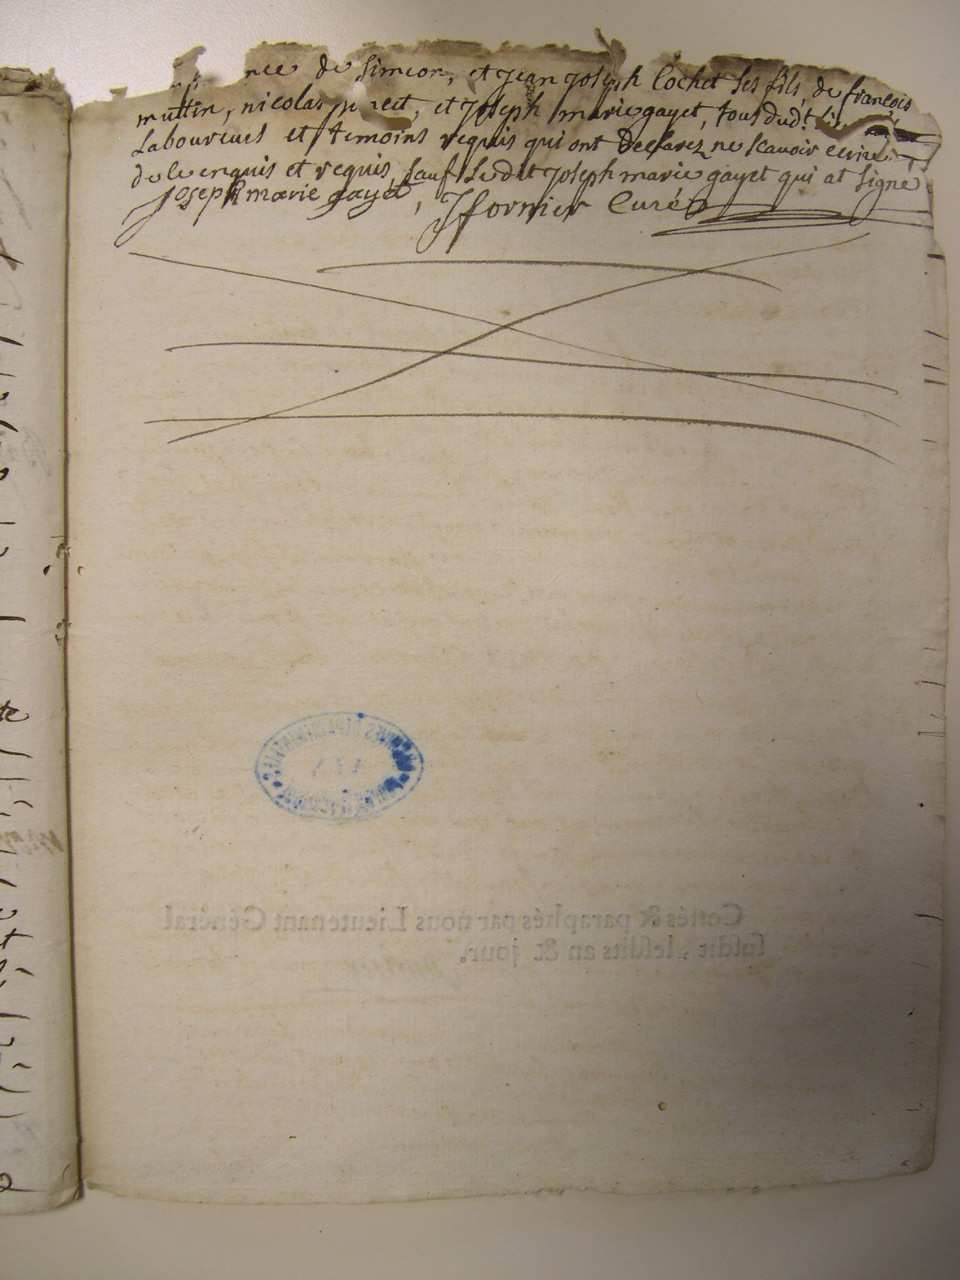 de Simeon, et jean joseph Cochet ses fils, de francois
muttin, nicolas et joseph marie gayet, tous dud.t
Laboureurs et temoins requis qui ont declarez ne scavoir ecrire
de ce enquis et requis, sauf Ledit joseph marie gayet qui at signé
joseph marie gayet, Jfornier Curé
Cottés & paraphés par nous Lieutenant Général
susdit, lesdits an & jour.